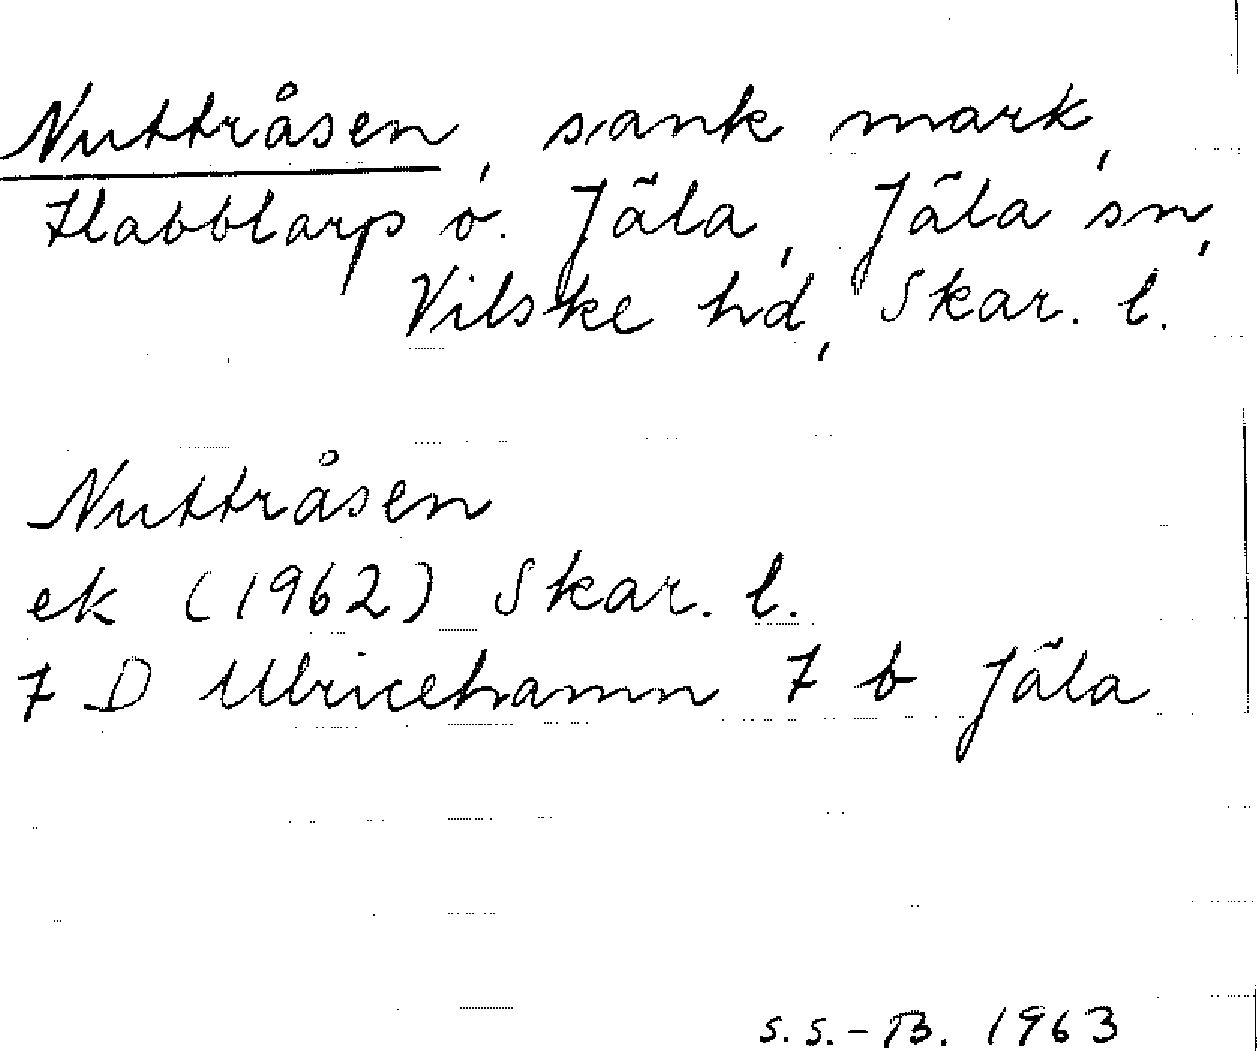 Nuttråsen, sank mark,
Habblarp o. Jäla, Jäla sn,
Vilske hd, Skar. l.
Nuttråsen
ek (1962) Skar. l.
7 D Ulricehamn 7 b Jäla
S.S.-B. 1963